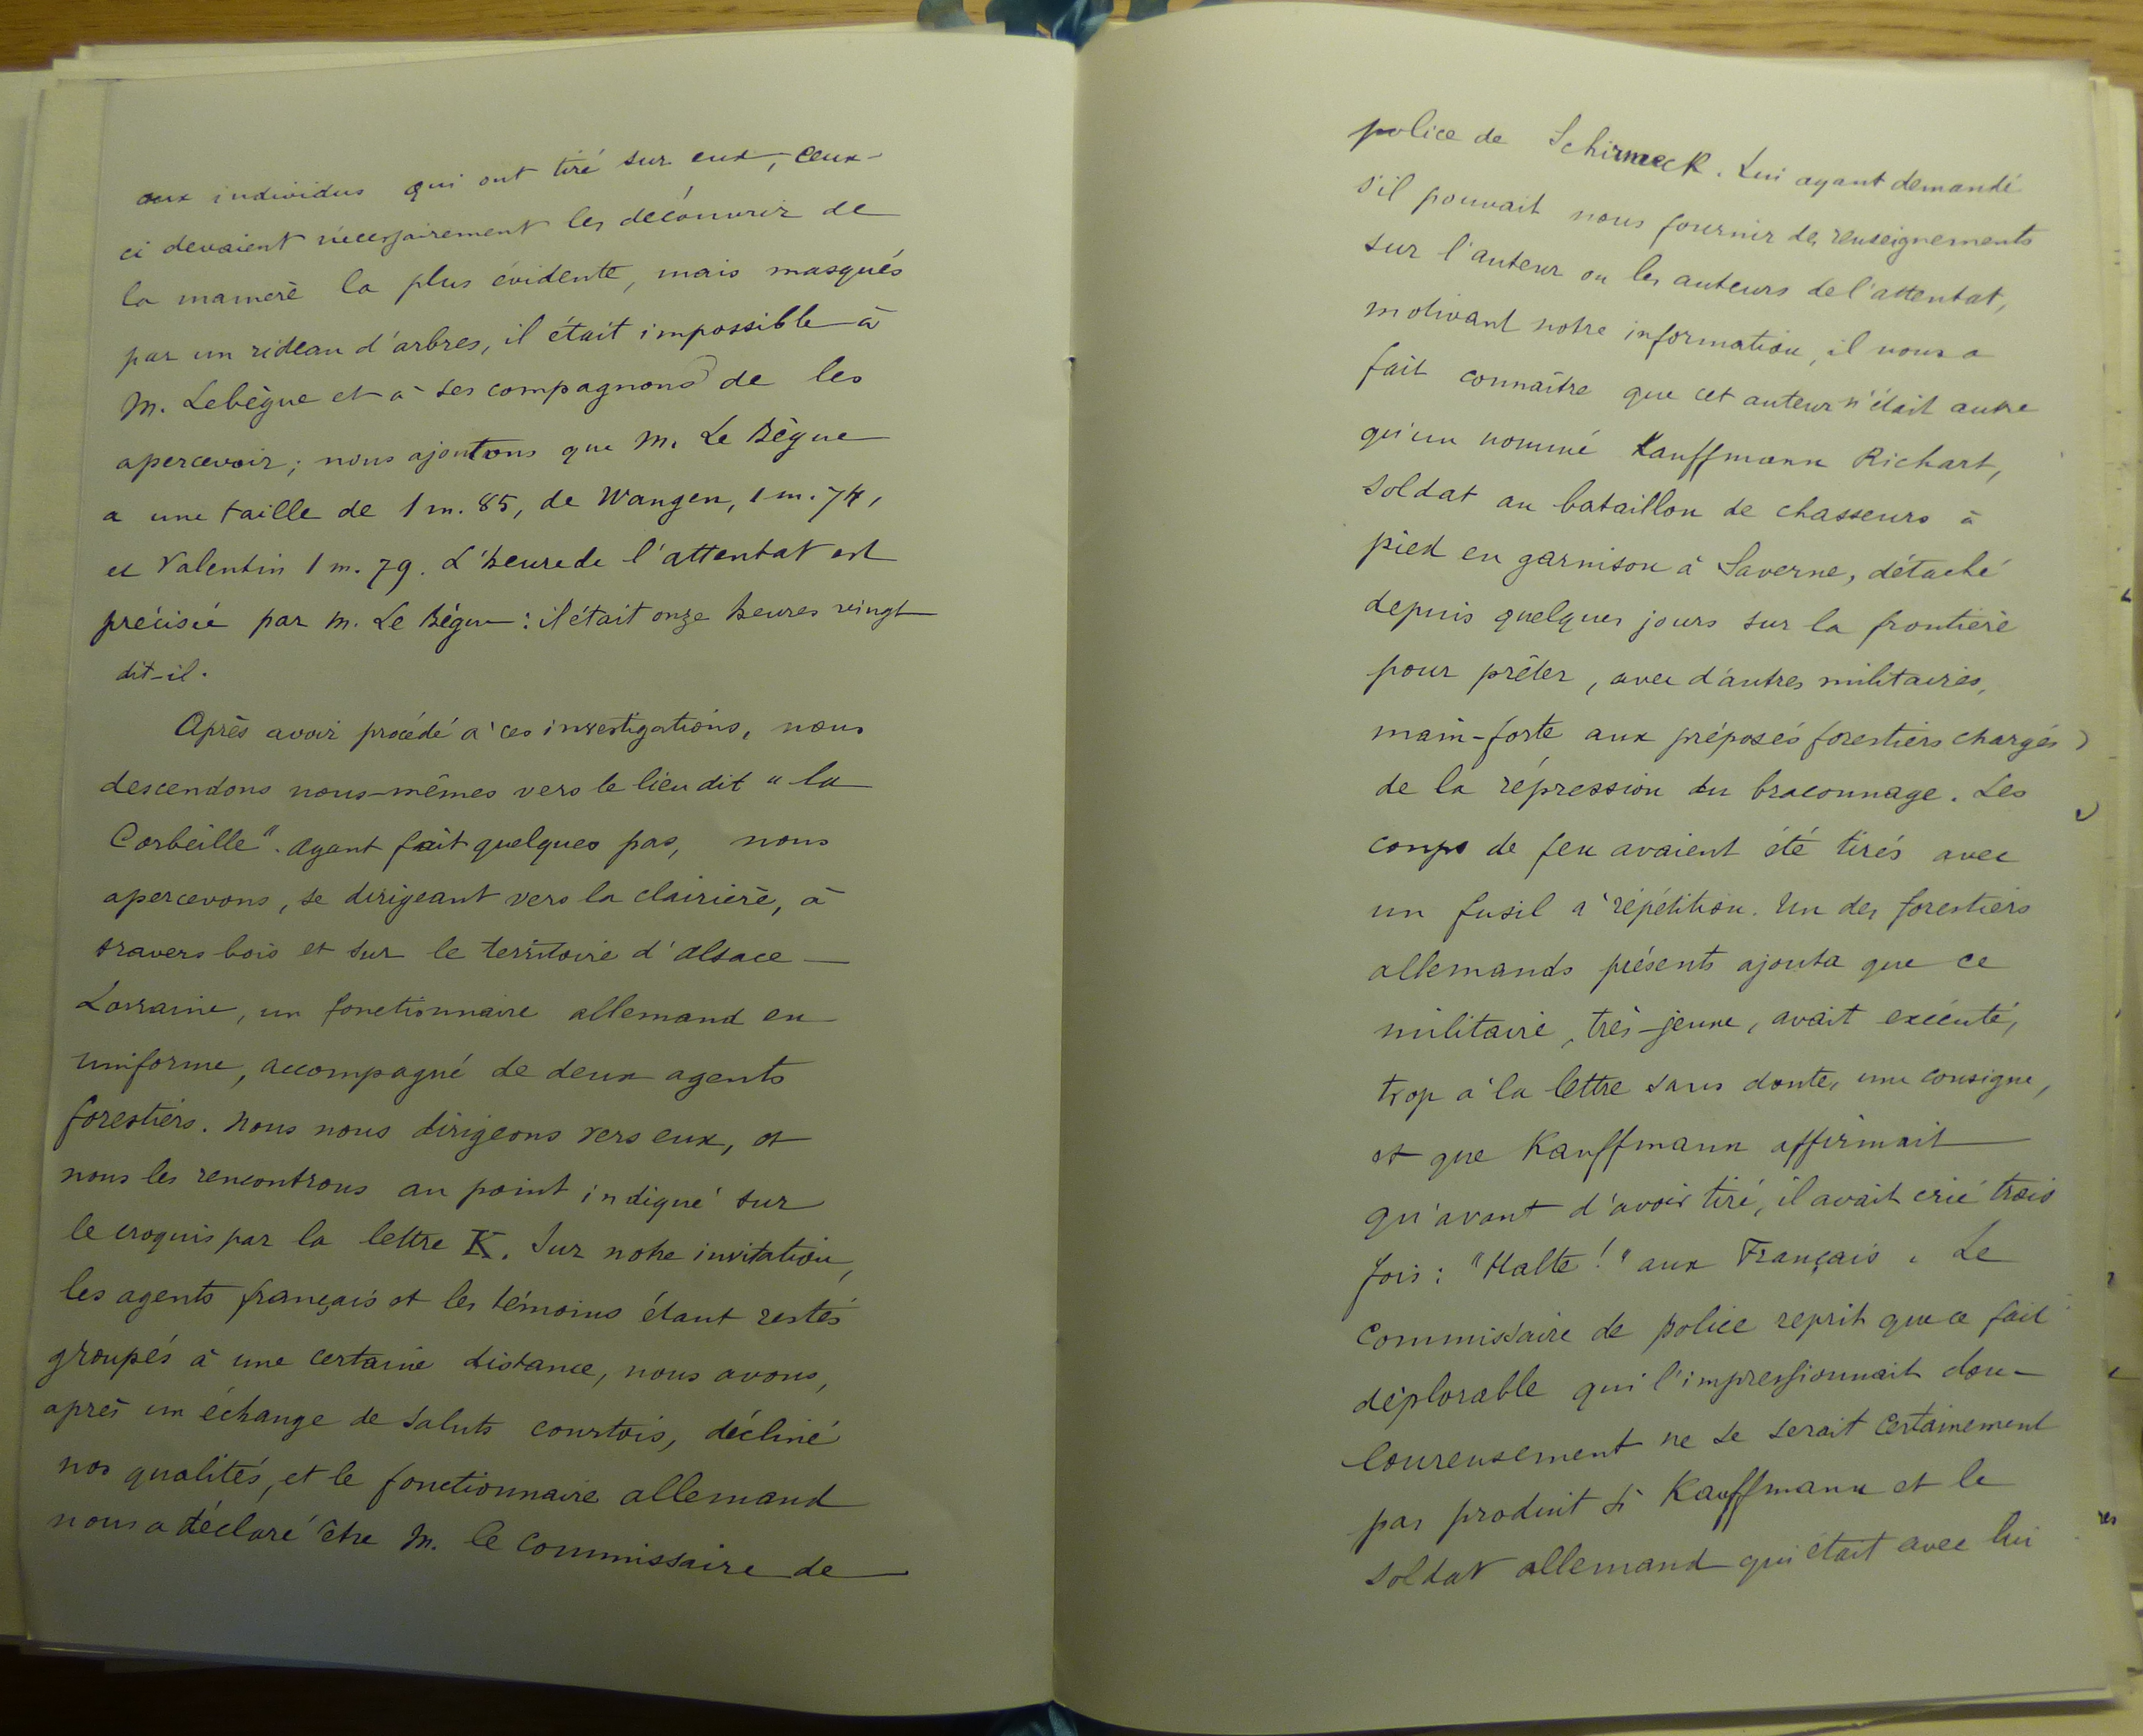 aux individus qui ont tiré sur eux, ceux-
ci devaient nécessairement les découvrir de
la manière la plus évidente, mais masqués
par un rideau d'arbres, il était impossible à
M. Lebègue et à ses compagnons de les
apercevoir; nous ajoutons que M. Le Bègue
a une taille de 1 m. 85, de Wangen, 1 m. 74,
et Valentin 1 m. 79. L'heure de l'attentat est
précisée par M. Le Bègue : il était onze heures vingt
dit-il.
Après avoir procédé à ces investigations, nous
descendons nous-mêmes vers le lieu dit "la
Corbeille". Ayant fait quelques pas, nous
apercevons, se dirigeant vers la clairière, à
travers bois et sur le territoire d'Alsace-
Lorraine, un fonctionnaire allemand en
uniforme, accompagné de deux agents
forestiers. Nous nous dirigeons vers eux, et
nous les rencontrons au point indiqué sur
le croquis par la lettre K. Sur notre invitation,
les agents français et les témoins étant restés
groupés à une certaine distance, nous avons,
après un échange de saluts courtois, décliné
nos qualités, et le fonctionnaire allemand
nous a déclaré être M. le Commissaire de
police de Schirmeck. Lui ayant demandé
s'il pouvait nous fournir des renseignements
sur l'auteur ou les auteurs de l'attentat,
motivant notre information, il nous a
fait connaître que cet auteur n'était autre
qu'un nommé Kauffmann Richart,
soldat au bataillon de chasseurs à
pied en garnison à Saverne, détaché
depuis quelques jours sur la frontière
pour prêter, avec d'autres militaires,
main-forte aux préposés forestiers chargés
de la répression du braconnage. Les
coups de feu avaient été tirés avec
un fusil à répétition. Un des forestiers
allemands présents ajouta que ce
militaire, très-jeune, avait exécuté,
trop à la lettre sans doute, une consigne,
et que Kauffmann affirmait
qu'avant d'avoir tiré, il avait crié trois
fois : "Halte !" aux Français. Le
Commissaire de police reprit que ce fait
déplorable qui l'impressionnait dou-
loureusement ne se serait certainement
pas produit si Kauffmann et le
soldat allemand qui était avec lui